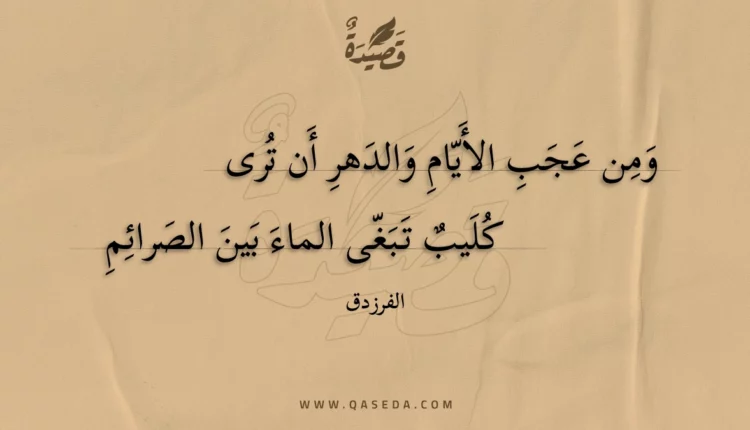 قَصِيْدَةٌ
وَمِن عَجَبِ الأَيّامِ وَالدَهرِ أَن تُرى
كُلَيبٌ تَبَغّى الماءَ بَينَ الصَرائِمِ
الفرزدق
WWW.QASEDA.COM